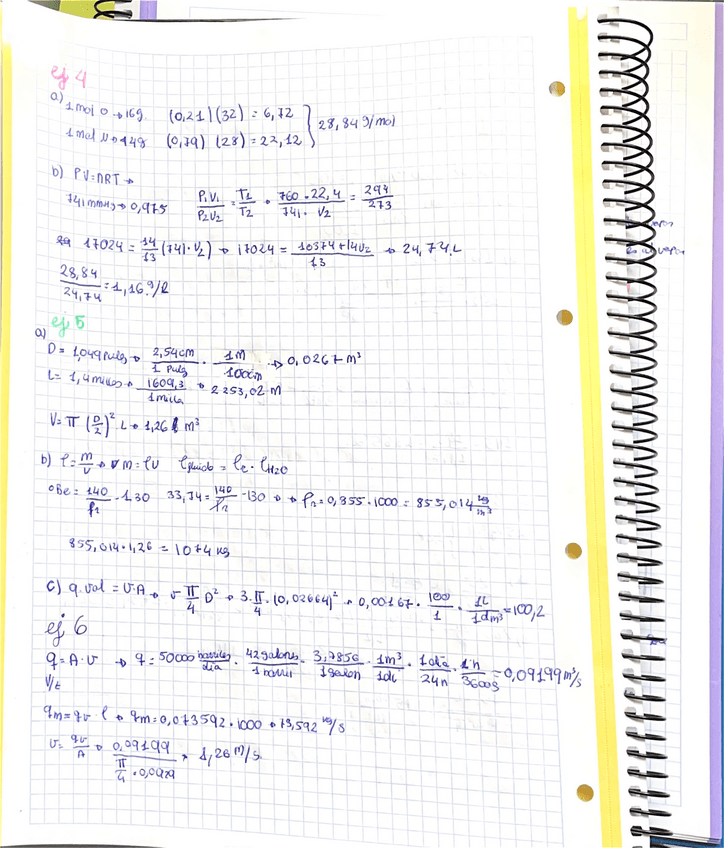 ej 4
a) 1 mol O → 16g   (0,21)(32) = 6,72
1 mol N → 14g   (0,79)(28) = 22,12 } 28,84 g/mol
b) PV=nRT →
741 mmHg → 0,975   P₁V₁/P₂V₂ = T₁/T₂ → 760·22,4/741·V₂ = 294/273
17024 = 14/13 (741·V₂) → 17024 = 10374+14V₂/13 → 24,74 L
28,84/24,74 = 1,16 g/l
ej 5
a)
D = 1,049 pulg → 2,54cm/1 pulg · 1m/100cm → 0,0267 m³
L = 1,4 millas → 1609,3/1milla → 2253,02 m
V = π (D/2)² · L → 1,26 m³
b) ρ = m/v → m = ρv   ρfluido = ρr · ρH₂O
ºBe = 140/ρr - 130   33,74 = 140/ρr - 130 → ρr = 0,855·1000 = 855,014 kg/m³
855,014·1,26 = 1074 kg
c) q vol = v·A → v π/4 D² → 3·π/4·(0,02664)² → 0,00167 · 100/1 · 1L/1dm³ = 100,2
ej 6
q = A·v → q = 50000 barriles/día · 42 galones/1 barril · 3,7856/1galon · 1m³/1dl · 1día/24h · 1h/3600s = 0,09199 m³/s
V/t
qm = qv ρ → qm = 0,073592·1000 → 73,592 kg/s
v = qv/A → 0,09199/π/4·0,0929 → 1,26 m/s